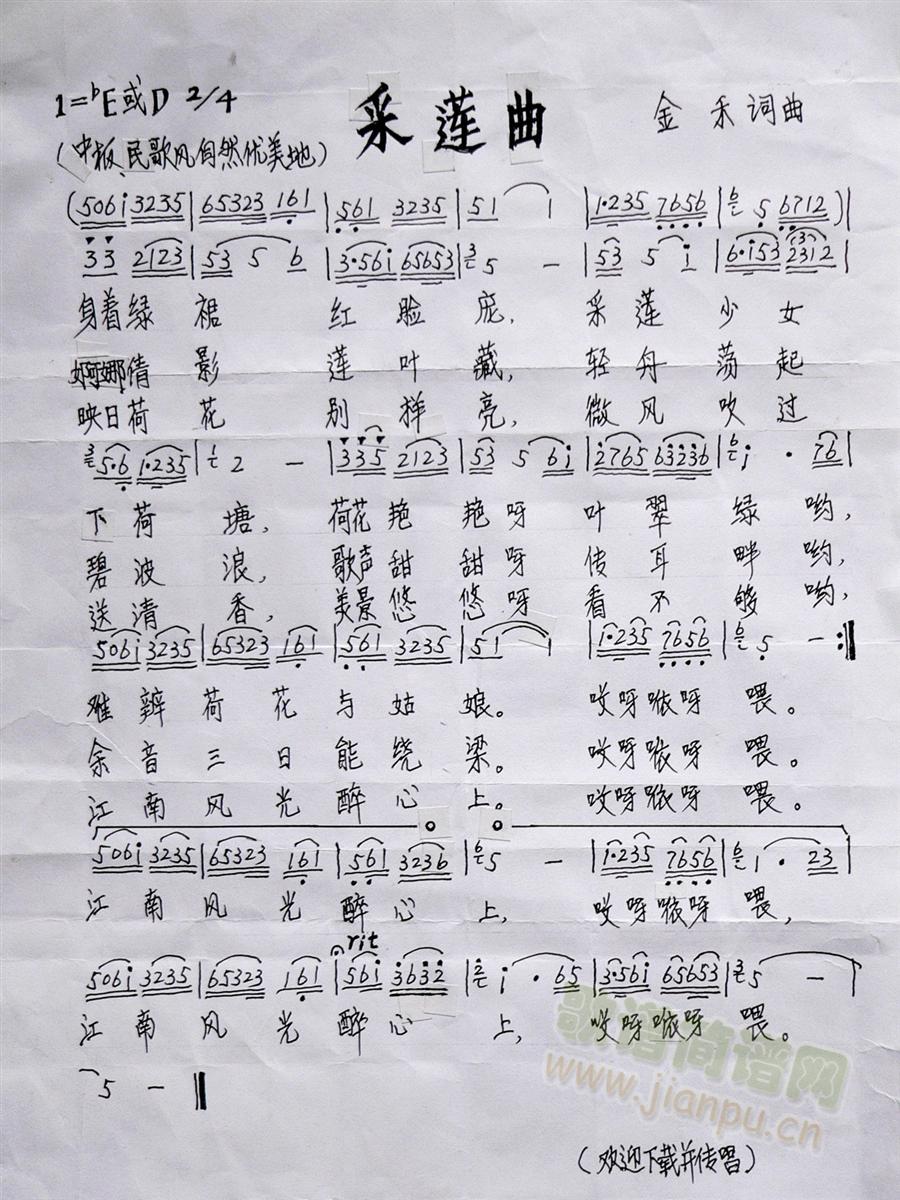 采莲曲
1=♭E或D 2/4
金禾词曲
(中板、民歌风自然优美地)
(506i 3235|65323 161|561 3235|51 1|1·235 7656|6 5 6712)|
33 2123|53 5 6|3·56i 65653|3 5 —|53 5 i|6·i53 2312|
身着绿裙 红脸庞, 采莲少女
婀娜倩影 莲叶藏, 轻舟荡起
映日荷花 别样亮, 微风吹过
3 5·6 1·235|1 2 —|335 2123|53 5 6i|2765 63236|6 i · 76|
下荷塘, 荷花艳艳呀 叶翠绿哟,
碧波浪, 歌声甜甜呀 传耳畔哟,
送清香, 美景悠悠呀 看不够哟,
506i 3235|65323 161|561 3235|51 1|1·235 7656|6 5 —:|
难辨荷花与姑娘。 哎呀咳呀喂。
余音三日能绕梁。 哎呀咳呀喂。
江南风光醉心上。 哎呀咳呀喂。
506i 3235|65323 161|561 3236|6 5 —|1·235 7656|6 1 · 23|
江南风光醉心上, 哎呀咳呀喂,
rit
506i 3235|65323 161|56i 3632|2 i · 65|3·56i 65653|3 5 —|
江南风光醉心上, 哎呀咳呀喂。
5 —
歌谱简谱网
www.jianpu.cn
(欢迎下载并传唱)